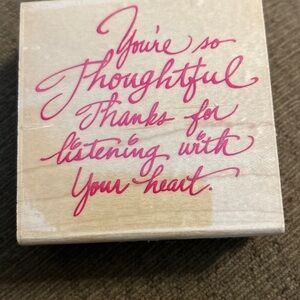 You're so
Thoughtful
Thanks for
listening with
Your heart.